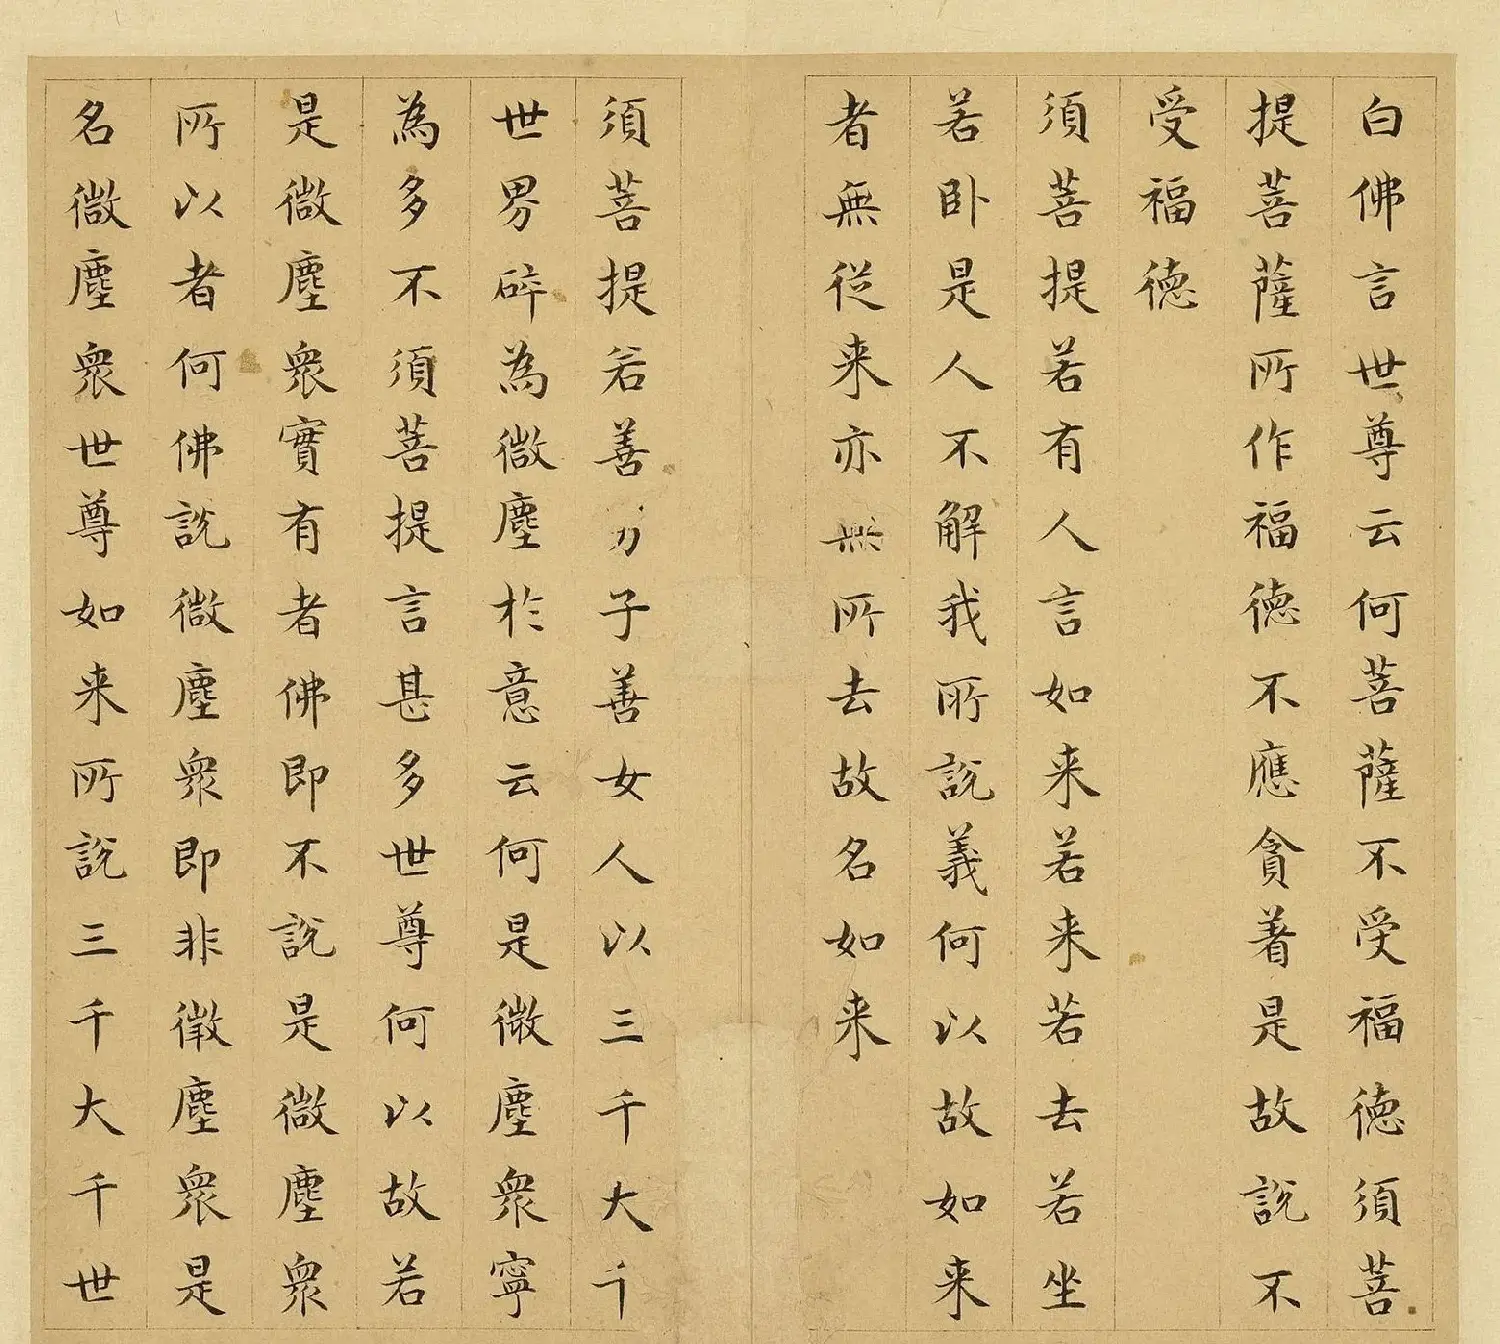 白佛言世尊云何菩薩不受福德須菩
提菩薩所作福德不應貪著是故說不
受福德
須菩提若有人言如来若来若去若坐
若卧是人不解我所說義何以故如来
者無從来亦無所去故名如来
須菩提若善男子善女人以三千大千
世界碎為微塵於意云何是微塵衆寧
為多不須菩提言甚多世尊何以故若
是微塵衆實有者佛即不說是微塵衆
所以者何佛說微塵衆即非微塵衆是
名微塵衆世尊如来所說三千大千世